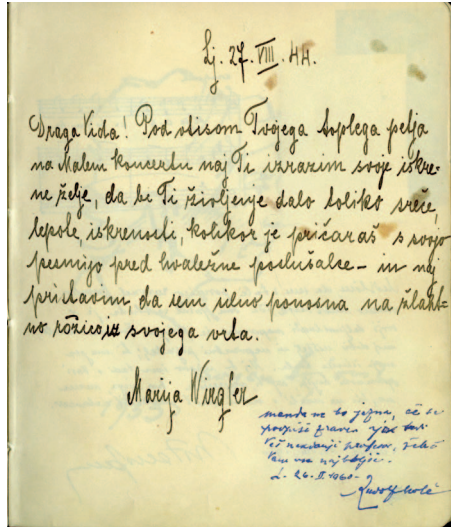 Lj. 27. VIII. 44.
Draga Vida! Pod vtisom Tvojega toplega petja
na Malem koncertu naj Ti izrazim svoje iskre-
ne želje, da bi Ti življenje dalo toliko sreče,
lepote, iskrenosti, kolikor je pričaraš s svojo
pesmijo pred hvaležne poslušalce - in naj
pristavim, da sem silno ponosna na žlaht=
no rožico iz svojega vrta.
Marija
menda ne bo jezna, če se
podpiše zraven
Vaš nekdanji želeč
Vam vse najboljše.
L. 26. II. 1960.
Rudolf